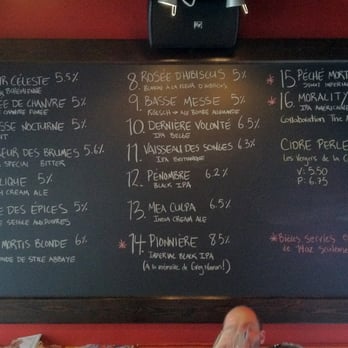 CÉLESTE 5.5%
BOHÉMIENNE
DE CHANVRE 5%
CHANVRE FUMÉE
NOCTURNE 5%
DES BRUMES 5.6%
SPECIAL BITTER
5%
CREAM ALE
DES ÉPICES 5%
SEIGLE AND POIVRES
MORTIS BLONDE 6%
DE STYLE ABBAYE
8. ROSÉE D'HIBISCUS 5%
BLANCHE À LA FLEUR D'HIBISCUS
9. BASSE MESSE 5%
KÖLSCH
10. DERNIÈRE VOLONTÉ 6.5%
IPA BELGE
11. VAISSEAU DES SONGES 6.3%
IPA BRITANNIQUE
12. PÉNOMBRE 6.2%
BLACK IPA
13. MEA CULPA 6.5%
INDIA CREAM ALE
*14. PIONNIÈRE 8.5%
IMPERIAL BLACK IPA
(À la mémoire de Greg Noonan!)
*15. PÉCHÉ MORT
STOUT IMPÉRIAL
*16. MORALITY
IPA AMÉRICAINE
Collaboration The A
CIDRE PERLE
Les Vergers de la C
V: 5.50
P: 6.75
*Bières servies e
de 14oz seulement